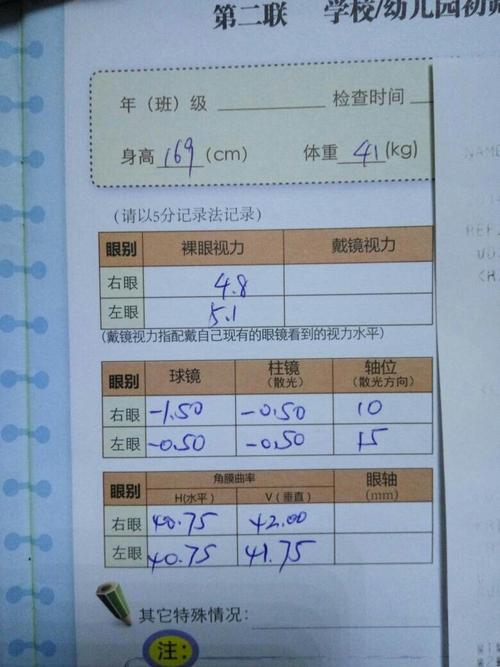 第二联 学校/幼儿园初筛
年（班）级 检查时间
身高 169 (cm) 体重 41 (kg)
（请以5分记录法记录）
眼别 裸眼视力 戴镜视力
右眼 4.8
左眼 5.1
(戴镜视力指配戴自己现有的眼镜看到的视力水平)
眼别 球镜 柱镜（散光） 轴位（散光方向）
右眼 -1.50 -0.50 10
左眼 -0.50 -0.50 15
眼别 角膜曲率 眼轴（mm）
H(水平) V（垂直）
右眼 40.75 42.00
左眼 40.75 41.75
其它特殊情况：
注：